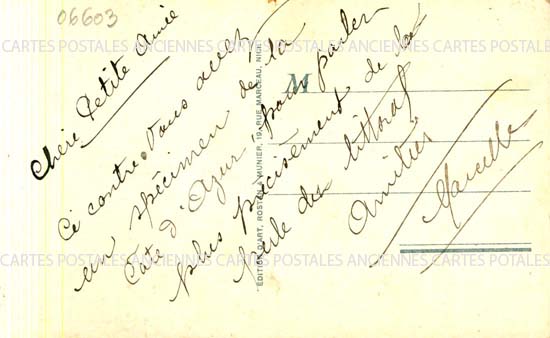 06603
Chère Petite Amie
Ci contre. Vous avez
un spécimen de la
Côte d'Azur pour parler
plus précisément de la
Perle du littoral
Amitiés
Marcelle
M
EDITION D'ART, ROSTAN & MUNIER, 19, RUE MARCEAU, NICE
CARTES POSTALES ANCIENNES CARTES POSTALES ANCIENNES CARTES POTALES
CARTES POSTALES ANCIENNES CARTES POSTALES ANCIENNES CARTES POTALES